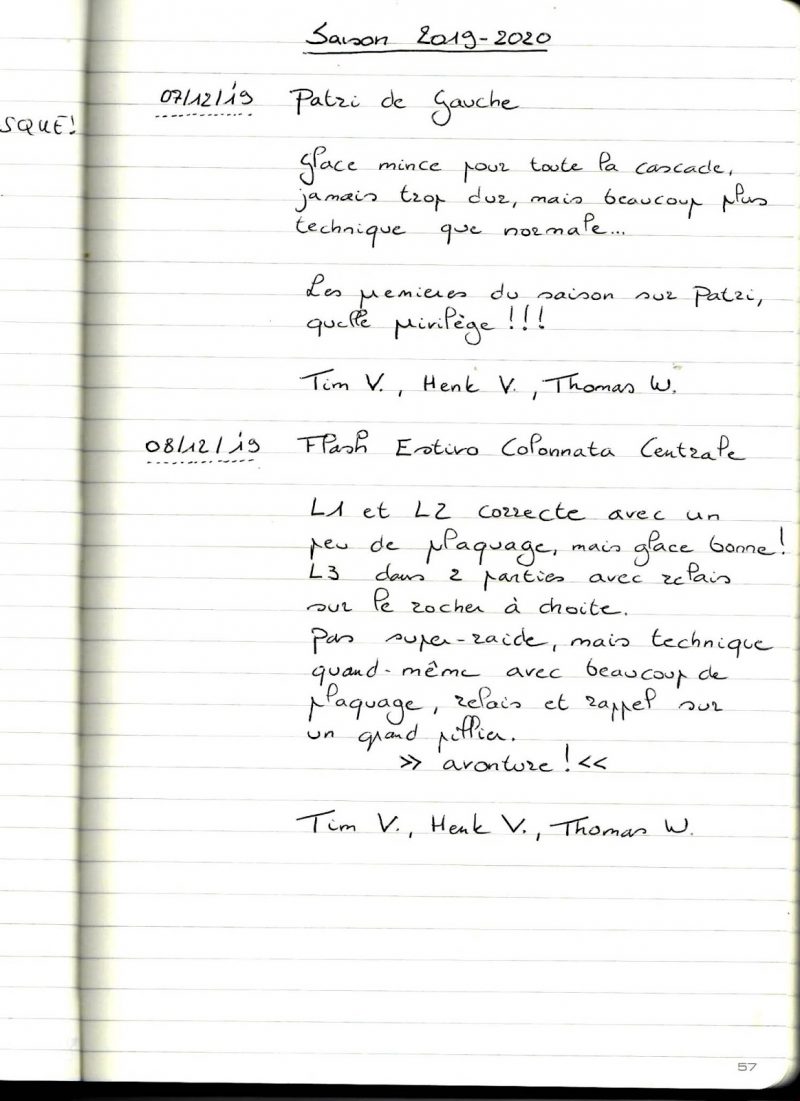 Saison 2019-2020
SQUE!
07/12/19 Patri de Gauche
Glace mince pour toute la cascade,
jamais trop dur, mais beaucoup plus
technique que normale...
Les premieres du saison sur Patri,
quelle privilège !!!
Tim V., Henk V., Thomas W.
08/12/19 Flash Estivo Colonnata Centrale
L1 et L2 correcte avec un
peu de plaquage, mais glace bonne!
L3 dans 2 parties avec relais
sur le rocher à droite.
Pas super-raide, mais technique
quand-même avec beaucoup de
plaquage, relais et rappel sur
un grand pillier.
>> avonture! <<
Tim V., Henk V., Thomas W.
57